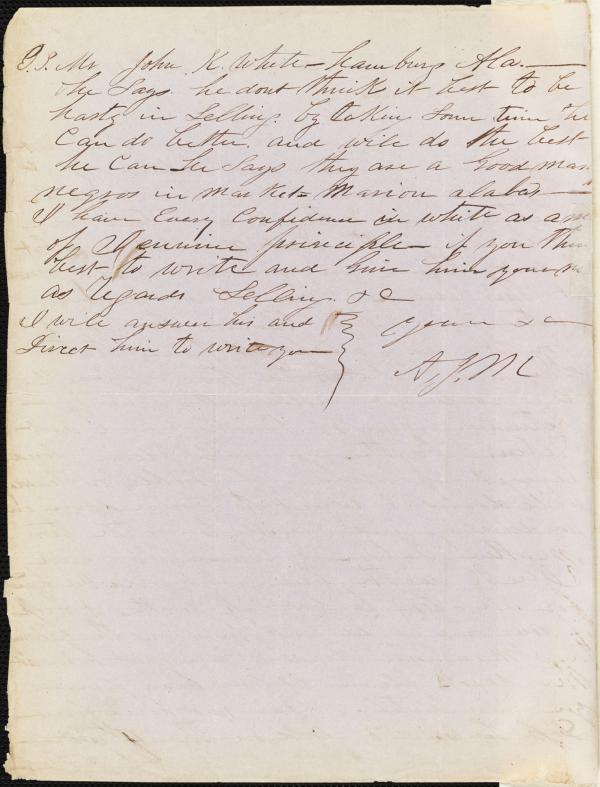 P.S. Mr John K. White - Hamburg Ala. -
he Says he dont think it best to be
hasty in Selling. by taking Some time he
Can do better. and will do the best
he Can he Says they are a Good man
negros in market - Marion alaba -
I have Every Confidence in white as a m
of Genuine principle - if you thin
best to write and him your
as regards Selling. &c
I will answer his and
Direct him to write you
yours &c
A. J. M